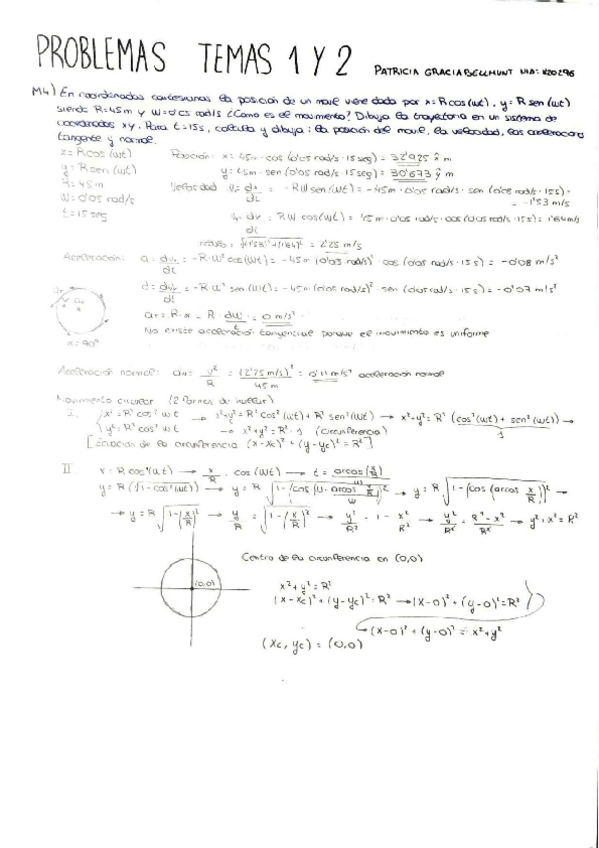 PROBLEMAS TEMAS 1 Y 2 PATRICIA GRACIA BELLMUNT NIA: 820296
M4) En coordenadas cartesianas la posición de un móvil viene dada por x=Rcos(wt), y=Rsen(wt)
siendo R=45m y W=0'05 rad/s ¿Como es el movimiento? Dibuja la trayectoria en un sistema de
coordenadas xy. Para t=15s, calcula y dibuja: la posición del móvil, la velocidad, las aceleraciones
tangente y normal.
x=Rcos(wt) Posición: x=45m·cos(0'05 rad/s·15seg)=32'925 m
y=Rsen(wt) y=45m·sen(0'05 rad/s·15seg)=30'673 m
R=45m Velocidad = dx/dt = -RWsen(wt) = -45m·0'05 rad/s·sen(0'05 rad/s·15s) =
W=0'05 rad/s = -1'53 m/s
t=15seg = dy/dt = RWcos(wt) = 45m·0'05 rad/s·cos(0'05 rad/s·15s) = 1'64 m/s
módulo = = 2'25 m/s
Aceleración: a = = -R·W²cos(wt) = -45m(0'05 rad/s)²·cos(0'05 rad/s·15s) = -0'08 m/s²
a = = -R·W²sen(wt) = -45m(0'05 rad/s)²·sen(0'05 rad/s·15s) = -0'07 m/s²
= R·α = R·dW/t = 0 m/s²
No existe aceleración tangencial porque el movimiento es uniforme
α=90°
Aceleración normal: an = v²/R = (2'25 m/s)²/45m = 0'11 m/s² aceleración normal
Movimiento circular (2 formas de hallar)
I. x²=R²cos²wt → x²+y²=R²cos²(wt)+R²sen²(wt) → x²+y²=R²(cos²(wt)+sen²(wt)) →
1
y²=R²cos²wt → x²+y²=R²·1 (circunferencia)
[Ecuación de la circunferencia (x-xc)²+(y-yc)²=R²]
II x=Rcos(wt) → x/R = cos(wt) → t =
y=R(√1-cos²(wt)) → y=R → y=R →
→ y=R√1-(x/R)² → y/R=√1-(x/R)² → y²/R²=1-x²/R² → y²/R²=R²-x²/R² → y²+x²=R²
(0,0) Centro de la circunferencia en (0,0)
x²+y²=R²
(x-xc)²+(y-yc)²=R² → (x-0)²+(y-0)²=R²
→ (x-0)²+(y-0)²=x²+y²
(xc, yc)=(0,0)